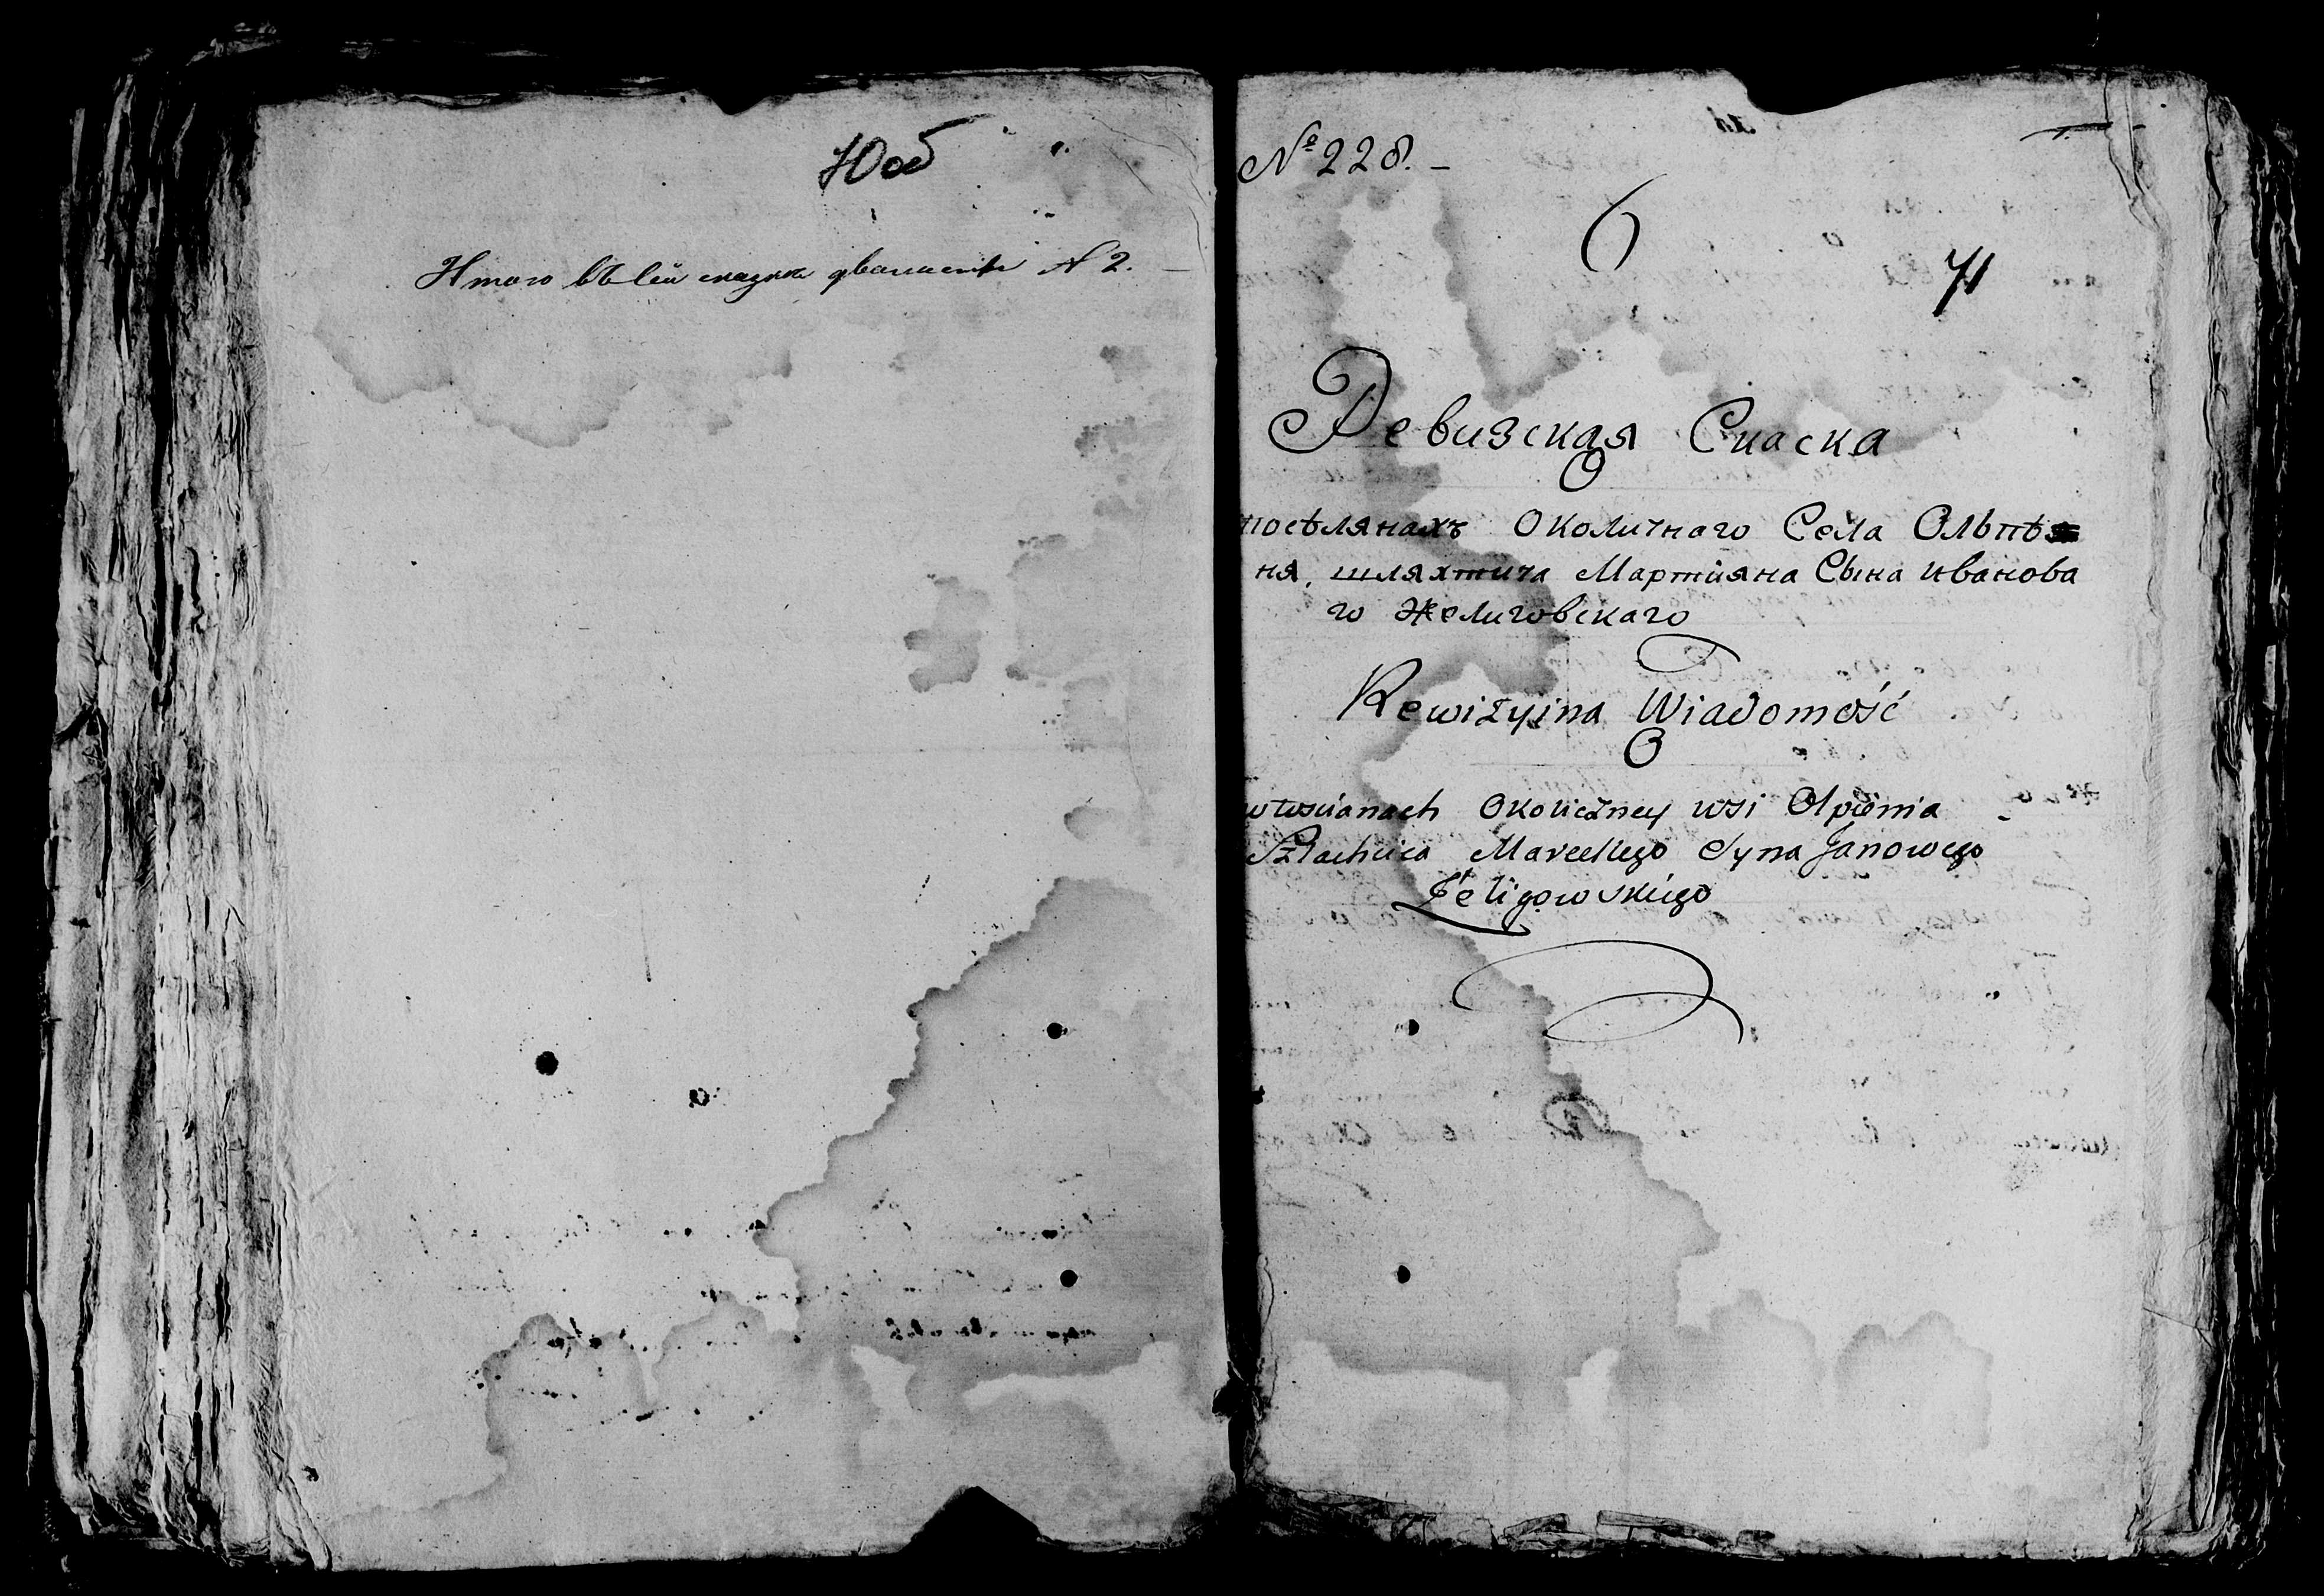 70об
Итого въ сей сказке двенасить № 2.
№ 228. –
6
71
Ревизская Скаска
О
посѣлянахъ Околичнаго Села Ольпѣ
ня, шляхтича Мартияна Сына Иванова
го Желиговскаго
Rewizyina Wiadomość
O
włościanach Okoliczney wsi Olpienia
Szlachcica Marcellego Syna Janowego
Żeligowskiego